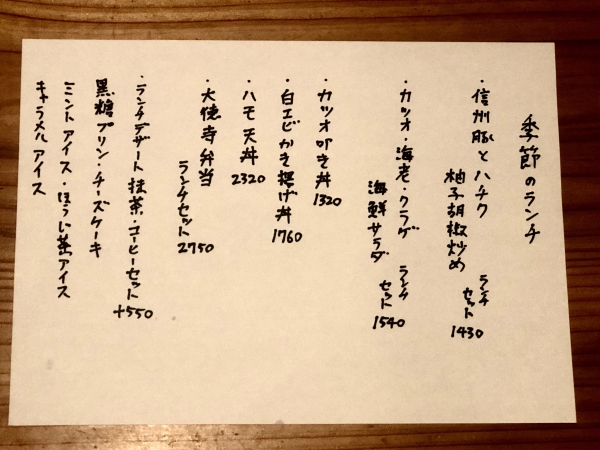 季節のランチ
・信州豚とハチク
柚子胡椒炒め
ランチ
セット
1430
・カツオ・海老・クラゲ
海鮮サラダ
ランチ
セット
1540
・カツオ叩き丼
1320
・白エビかき揚げ丼
1760
・ハモ天丼
2320
・大徳寺弁当
ランチセット
2750
・ランチデザート 抹茶・コーヒーセット
+550
黒糖プリン・チーズケーキ
ミントアイス・ほうじ茶アイス
キャラメルアイス